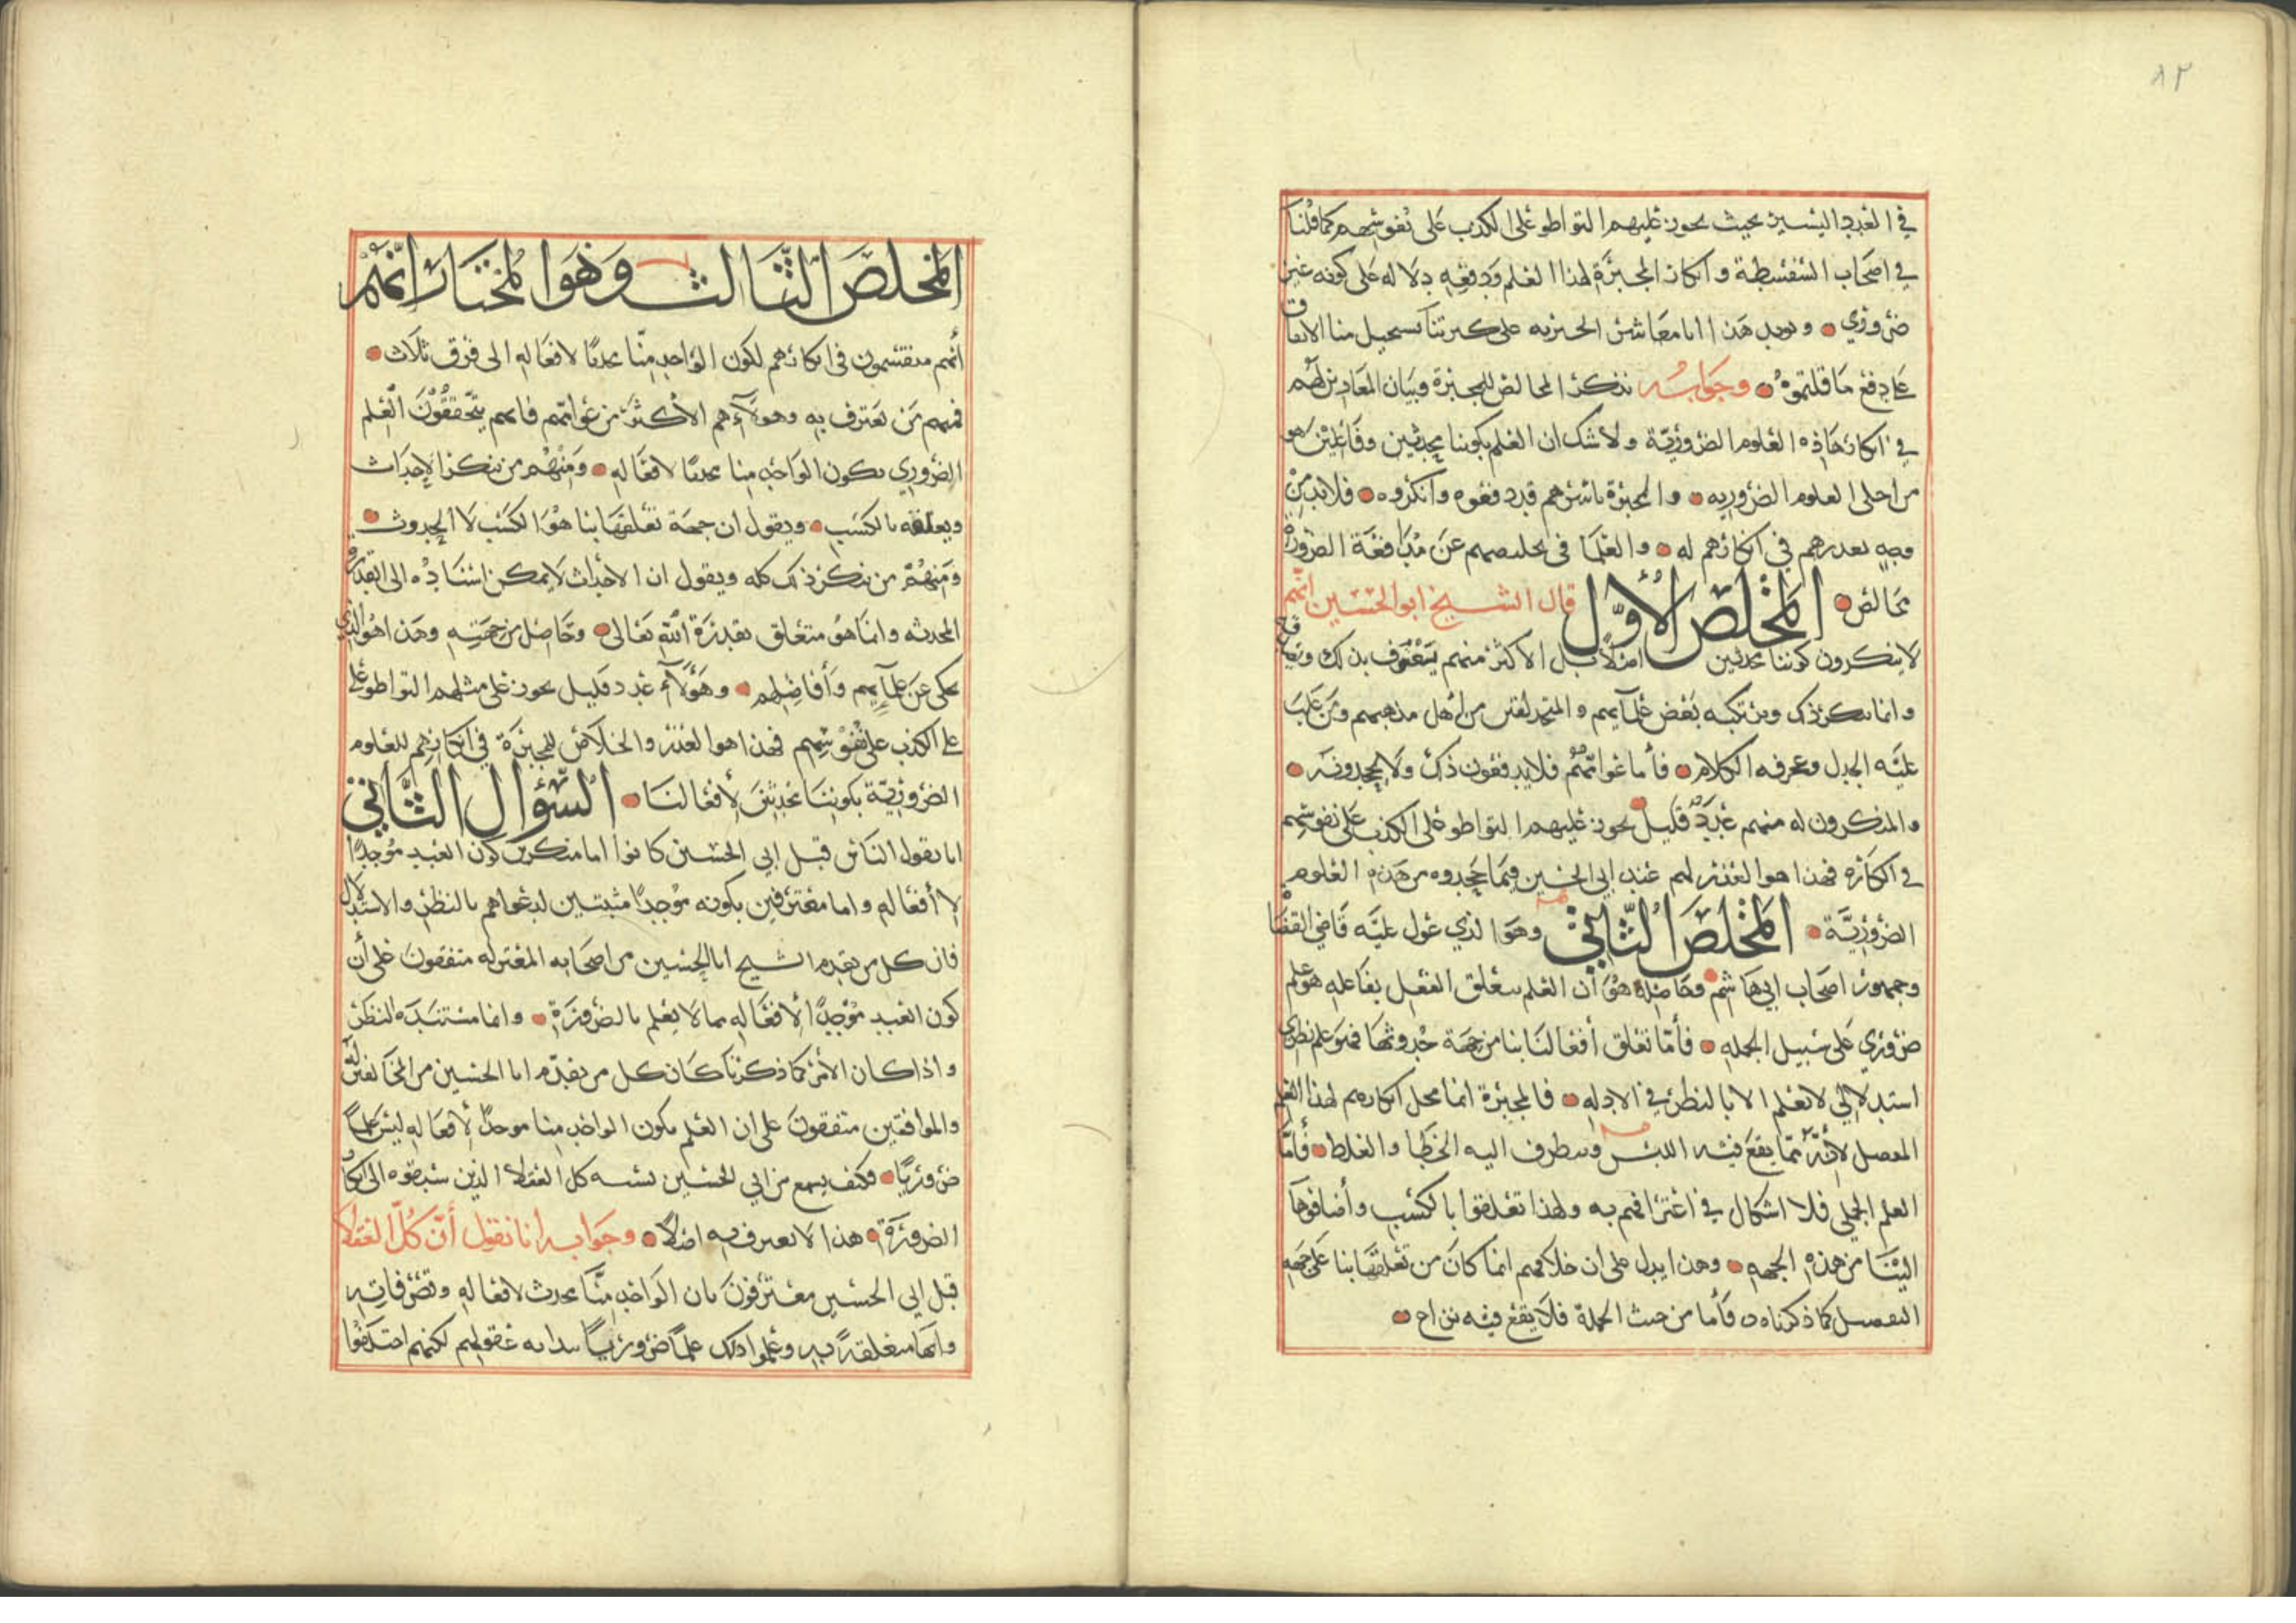 ٨٢
في العدد اليسير بحيث يجوز عليهم التواطو على الكذب على نفوسهم كما قلنا
في اصحاب السفسطة وانكار المجبرة لهذا العلم ودفعه دلاله على كونه غير
ضروري ٥ ويويد هذا انا معاشر الجبريه على كثرتنا يستحيل منا الاتفاق
على دفع ما قلتموه ٥ وجوابه نذكر المخالص للمجبرة وبيان المعاذير لهم
في انكار هاذه العلوم الضروريّة ولا شك ان العلم بكوننا محدثين وفاعلين هو
من اجلى العلوم الضروريه ٥ والمجبرة باسرهم قد دفعوه وانكروه ٥ فلا بد من
وجه يعذرهم في انكارهم له ٥ وللعلما في تخليصهم عن مدافعة الضرورة
مخالص ٥ المخلص الأوّل قال الشيخ ابو الحسين انهم
لا ينكرون كوننا محدثين اصلا بل الاكثر منهم يعترف بذلك
وانما ينكر ذلك ويرتكبه بعض علمآيهم والمتحذلقين من اهل مذهبهم ومن غلب
عليه الجدل ومعرفه الكلام ٥ فأما عوامّهم فلا يدفعون ذلك ولا يجحدونه ٥
والمنكرون له منهم عدد قليل يجوز عليهم التواطو على الكذب على نفوسهم
في انكاره فهذا هو العذر لهم عند ابي الحسين فيما جحدوه من هذه العلوم
الضروريّة ٥ المخلص الثّاني وهو الذي عول عليه قاضي القضاه
وجمهور اصحاب ابي هاشم وحاصله هو أن العلم بتعلق الفعل بفاعله هو علم
ضروري على سبيل الجمله ٥ فأمّا تعلق أفعالنا بنا من جهة حدوثها فهو علم نظري
استدلالي لا يعلم الا بالنظر في الادله ٥ فالمجبرة انما محل انكارهم لهذا العلم
المفصل لأنّه ممّا يقع فيه اللبس ويتطرف اليه الخطا والغلط ٥ فأمّا
العلم الجملي فلا اشكال في اعترافهم به ولهذا تعلقوا بالكسب وأضافوها
الينا من هذه الجهه ٥ وهذا يدل على ان خلافهم انما كان من تعلقها بنا على جهه
التفصيل كما ذكرناه ٥ فأما من حيث الجملة فلا يقع فيه نزاع ٥
المخلص الثّالث وهو المختار انّهم
أنهم منقسمون في انكارهم لكون الواحد منّا محدثا لافعاله الى فرق ثلاث ٥
فمنهم من يعترف به وهولآء هم الأكثر من عوامّهم فانهم يتحققون العلم
الضروري بكون الواحد منا محدثا لافعاله ٥ ومنهم من ينكر الاحداث
ويعلقه بالكسب ٥ ويقول ان جهة تعلقها بنا هو الكسب لا الحدوث ٥
ومنهم من ينكر ذلك كله ويقول ان الاحداث لا يمكن اسناده الى القدره
المحدثه وانما هو متعلق بقدرة الله تعالى ٥ وحاصل من جهته وهذا هو الذي
يحكى عن علمآيهم وأفاضلهم ٥ وهؤلآء عدد قليل يجوز على مثلهم التواطو على
على الكذب على نفوسهم فهذا هو العذر والخلاص للمجبرة في انكارهم للعلوم
الضروريّة بكوننا محدثين لأفعالنا ٥ السّؤال الثّاني
اما يقول الناس قبل ابي الحسين كانوا اما منكرين كون العبد موجدا
لا أفعاله واما معترفين بكونه موجدا مثبتين لدعواهم بالنظر والاستدلال
فان كل من تقدم الشيخ ابا الحسين من اصحابه المعتزله متفقون على أن
كون العبد موجدا لأفعاله مما لا يعلم بالضرورة ٥ وانما مستنده النظر
واذا كان الأمر كما ذكرنا كان كل من تقدّم ابا الحسين من المخالفين له
والموافقين متفقون على ان العلم بكون الواحد منا موجدا لأفعاله ليس علما
ضروريّا ٥ فكيف يسمع من ابي الحسين نسبه كل العقلا الذين سبقوه الى انكار
الضرورة ٥ هذا لا يعترف به اصلا ٥ وجوابه انا نقول أنّ كلّ العقلا
قبل ابي الحسين معترفون بان الواحد منّا محدث لافعاله وتصرفاته
وانها متعلقة به وعلموا ذلك علما ضروريا ببدايه عقولهم لكنهم اختلفوا